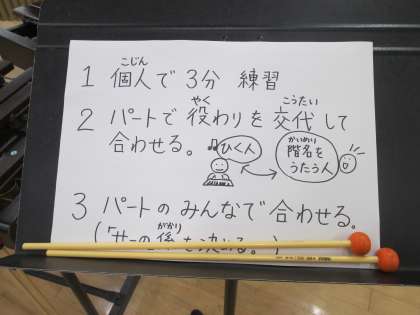 こじん
1 個人で 3分 練習
やく こうたい
2 パートで 役わりを 交代 して
合わせる。
ひく人
かいめい
階名を
うたう人
3 パートの みんなで 合わせる。
がかり
係